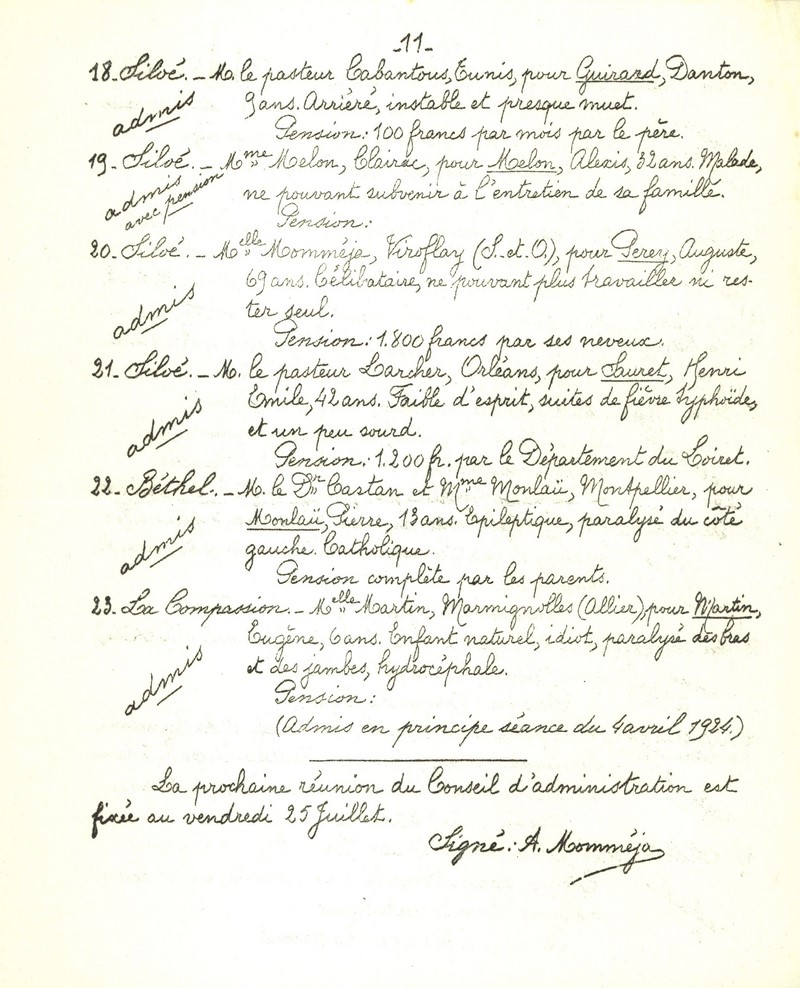 -11-
18- Siloé. - M. le pasteur Cabantous, Tunis, pour Guirard, Danton,
admis
9 ans. Arriéré, instable et presque muet.
Pension: 100 francs par mois par le père.
19- Siloé. - Mme Melon, Clairac, pour Melon, Alexis, 32 ans. Malade,
admis
avec pension
ne pouvant subvenir à l'entretien de sa famille.
Pension:
20- Siloé. - Melle Momméja, Viroflay (S.-et-O.), pour Perey, Auguste,
69 ans. Célibataire, ne pouvant plus travailler ni res-
admis
ter seul.
Pension: 1.800 francs par ses neveux.
21- Siloé. - M. le pasteur Larcher, Orléans, pour Sauret, Henri
Emile, 42 ans. Faible d'esprit, suites de fièvre typhoïde,
admis
et un peu sourd.
Pension: 1.200 fr. par le Département du Loiret.
22- Béthel. - M. le Dr Castan et Mme Monlaü, Montpellier, pour
Monlaü, Pierre, 13 ans. Epileptique, paralysé du côté
admis
gauche. Catholique.
Pension complète par les parents.
23- La Compassion. - Melle Martin, Marmignolles (Allier), pour Martin,
Eugène, 6 ans. Enfant naturel, idiot, paralysé des bras
admis
et des jambes, hydrocéphale.
Pension:
(Admis en principe séance du 4 avril 1924.)
La prochaine réunion du Conseil d'administration est
fixée au vendredi 25 Juillet.
Signé: A. Momméja